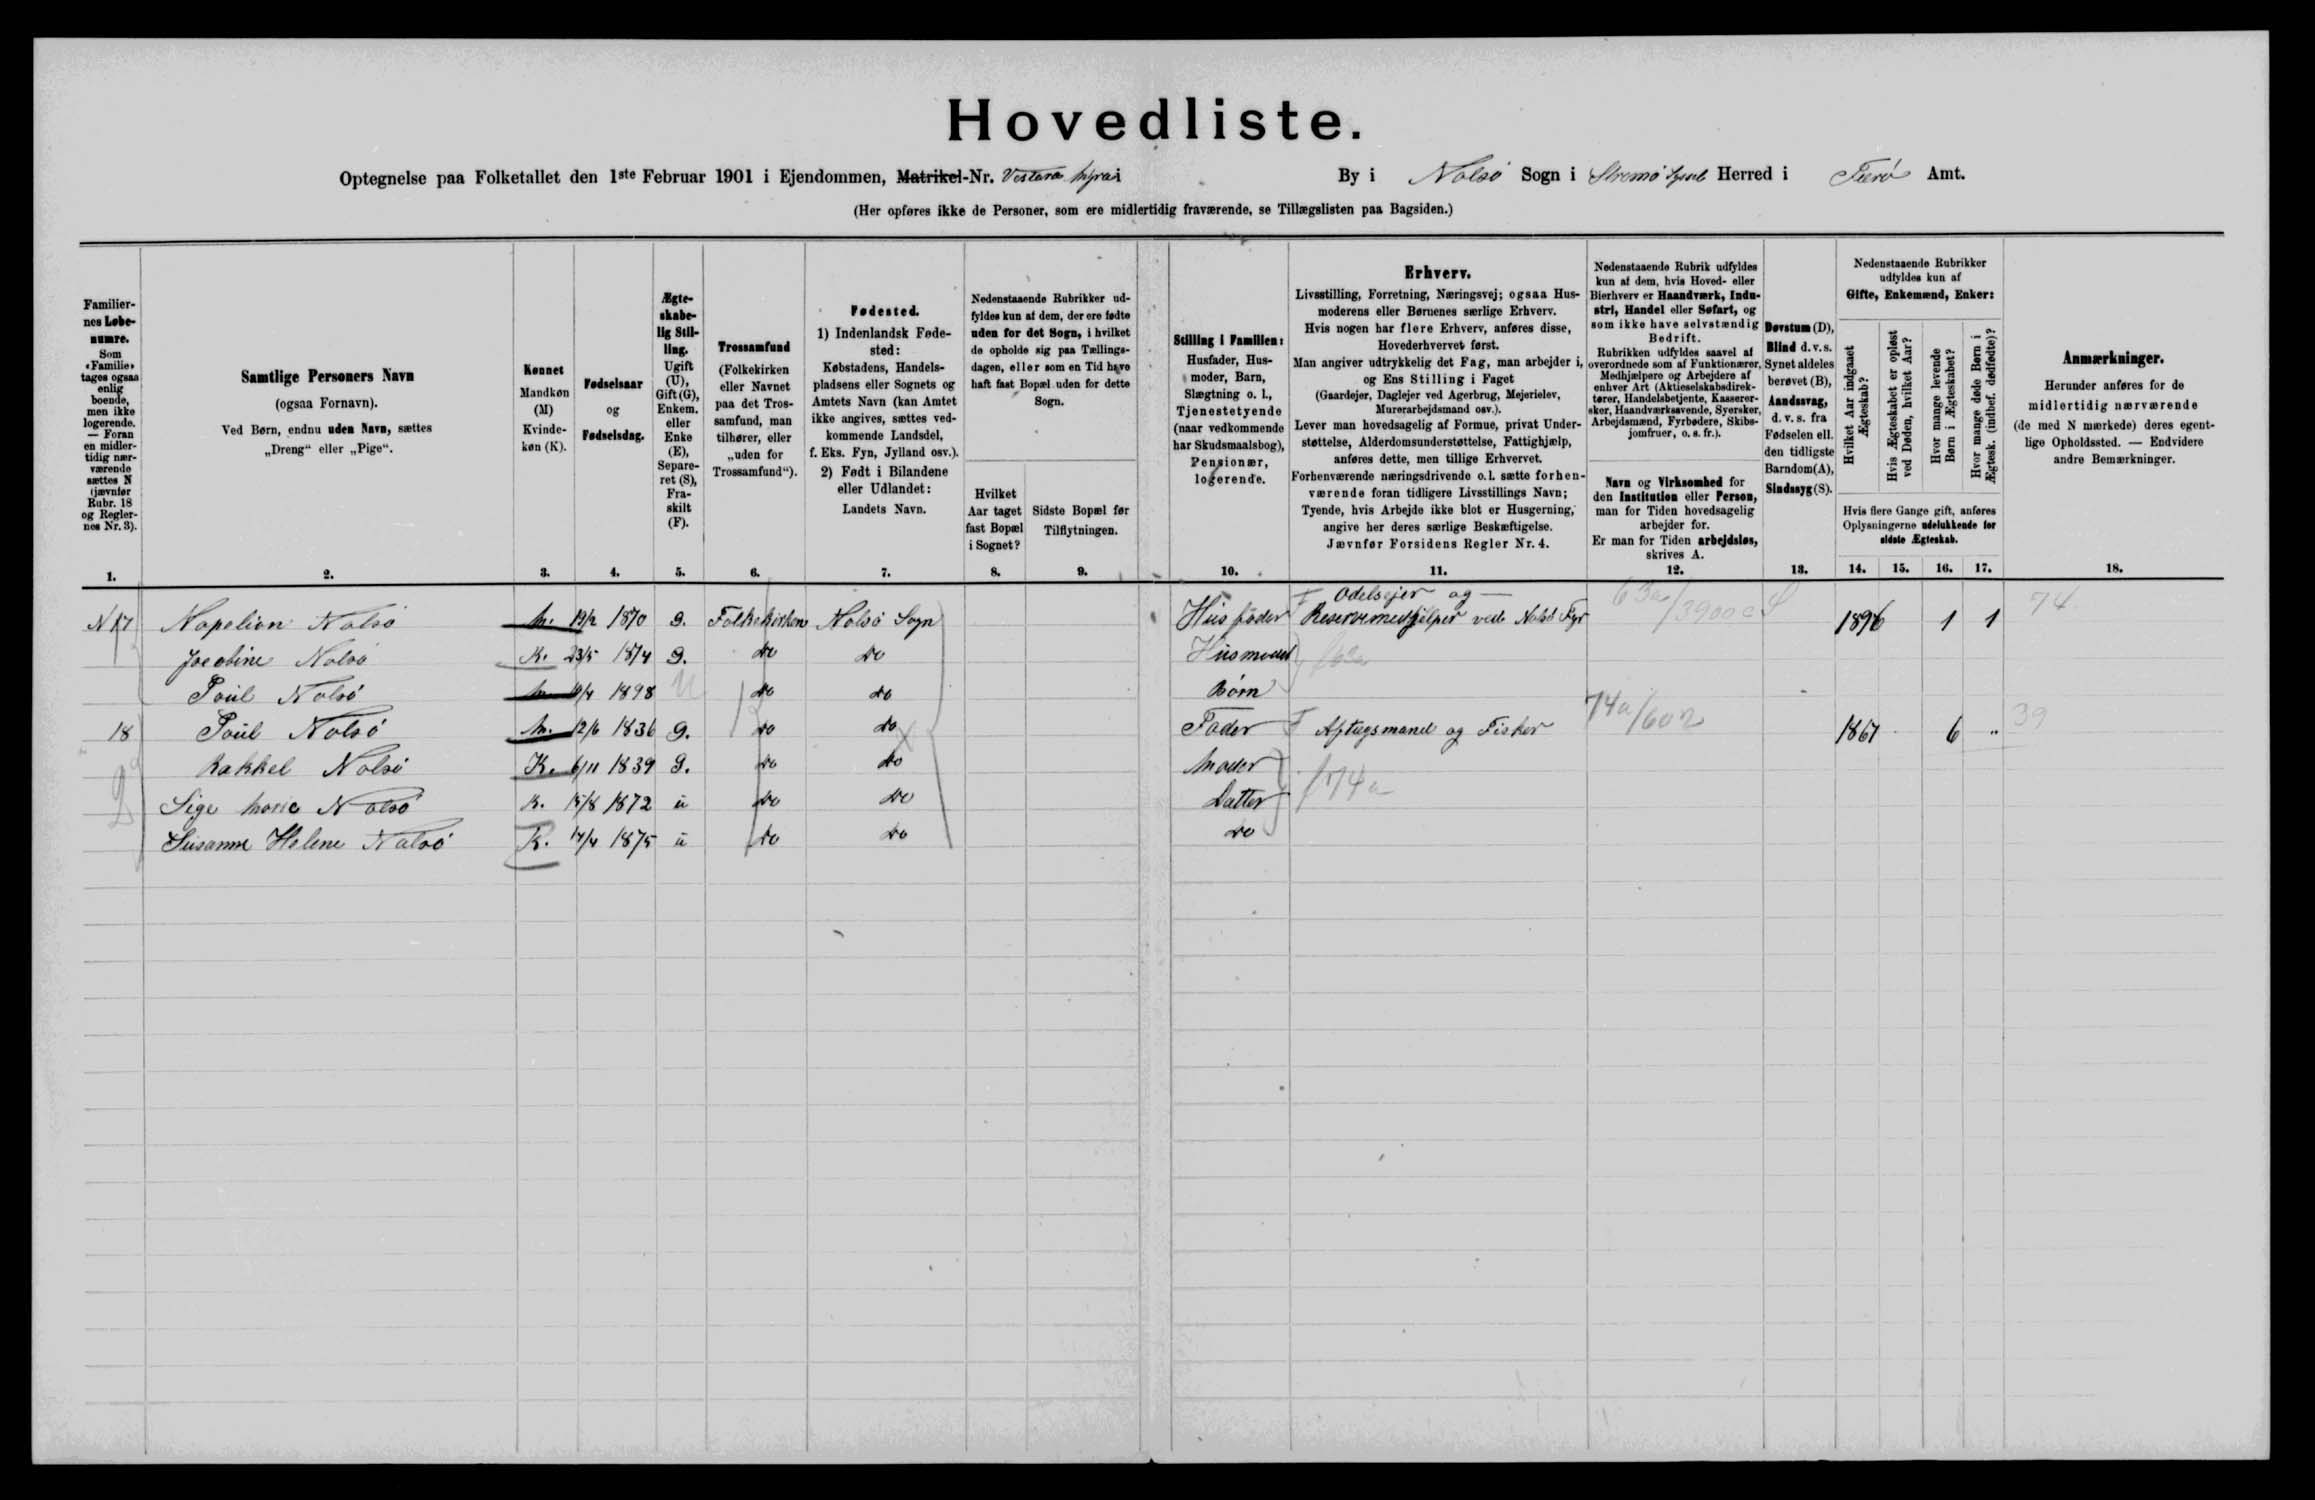 Hovedliste.
Optegnelse paa Folketallet den 1ste Februar 1901 i Ejendommen, Matrikel-Nr. Vestera By i Nolsö Sogn i Strømø Syssel Herred i Færö Amt.
(Her opføres ikke de Personer, som ere midlertidig fraværende, se Tillægslisten paa Bagsiden.)
Familiernes Løbenumre.
Som «Familie» tages ogsaa enlig boende, men ikke logerende. — Foran en midlertidig nærværende sættes N (jævnfør Rubr. 18 og Reglernes Nr. 3).
Samtlige Personers Navn
(ogsaa Fornavn).
Ved Børn, endnu uden Navn, sættes
„Dreng“ eller „Pige“.
Kønnet
Mandkøn (M)
Kvindekøn (K).
Fødselsaar
og
Fødselsdag.
Ægteskabelig Stilling.
Ugift (U), Gift (G), Enkem. eller Enke (E), Separeret (S), Fraskilt (F).
Trossamfund
(Folkekirken eller Navnet paa det Trossamfund, man tilhører, eller „uden for Trossamfund“).
Fødested.
1) Indenlandsk Fødested:
Købstadens, Handelspladsens eller Sognets og Amtets Navn (kan Amtet ikke angives, sættes vedkommende Landsdel, f. Eks. Fyn, Jylland osv.).
2) Født i Bilandene eller Udlandet:
Landets Navn.
Nedenstaaende Rubrikker udfyldes kun af dem, der ere fødte uden for det Sogn, i hvilket de opholde sig paa Tællingsdagen, eller som en Tid have haft fast Bopæl uden for dette Sogn.
Hvilket Aar taget fast Bopæl i Sognet?
Sidste Bopæl før Tilflytningen.
Stilling i Familien:
Husfader, Husmoder, Barn, Slægtning o. l., Tjenestetyende (naar vedkommende har Skudsmaalsbog), Pensionær, logerende.
Erhverv.
Livsstilling, Forretning, Næringsvej; ogsaa Husmoderens eller Børnenes særlige Erhverv.
Hvis nogen har flere Erhverv, anføres disse, Hovederhvervet først.
Man angiver udtrykkelig det Fag, man arbejder i, og Ens Stilling i Faget
(Gaardejer, Daglejer ved Agerbrug, Mejerielev, Murerarbejdsmand osv.).
Lever man hovedsagelig af Formue, privat Understøttelse, Alderdomsunderstøttelse, Fattighjælp, anføres dette, men tillige Erhvervet.
Forhenværende næringsdrivende o. l. sætte forhenværende foran tidligere Livsstillings Navn;
Tyende, hvis Arbejde ikke blot er Husgerning, angive her deres særlige Beskæftigelse.
Jævnfør Forsidens Regler Nr. 4.
Nedenstaaende Rubrik udfyldes kun af dem, hvis Hoved- eller Bierhverv er Haandværk, Industri, Handel eller Søfart, og som ikke have selvstændig Bedrift.
Rubrikken udfyldes saavel af overordnede som af Funktionærer, Medhjælpere og Arbejdere af enhver Art (Aktieselskabsdirektører, Handelsbetjente, Kasserersker, Haandværkssvende, Syersker, Arbejdsmænd, Fyrbødere, Skibsjomfruer, o. s. fr.).
Navn og Virksomhed for den Institution eller Person, man for Tiden hovedsagelig arbejder for.
Er man for Tiden arbejdsløs, skrives A.
Døvstum (D), Blind d. v. s. Synet aldeles berøvet (B), Aandssvag, d. v. s. fra Fødselen ell. den tidligste Barndom (A), Sindssyg (S).
Nedenstaaende Rubrikker udfyldes kun af
Gifte, Enkemænd, Enker:
Hvilket Aar indgaaet Ægteskab?
Hvis Ægteskabet er opløst ved Døden, hvilket Aar?
Hvor mange levende Børn i Ægteskabet?
Hvor mange døde Børn i Ægtesk. (indbef. dødfødte)?
Hvis flere Gange gift, anføres Oplysningerne udelukkende for sidste Ægteskab.
Anmærkninger.
Herunder anføres for de midlertidig nærværende (de med N mærkede) deres egentlige Opholdssted. — Endvidere andre Bemærkninger.
1. 2. 3. 4. 5. 6. 7. 8. 9. 10. 11. 12. 13. 14. 15. 16. 17. 18.
Odelsejer og — 63a/3900c 74
N 17 Napolion Nolsö M. 19/2 1870 G. Folkekirken Nolsö Sogn Husfader Reservemedhjelper ved Nolsö Fyr 1896 1 1
Jacobine Nolsö K. 23/5 1874 G. do do Husmoder 63a
Poul Nolsö 1898 U do do Børn
18 Poul Nolsö M. 12/6 1836 G. do do Fader Aftægsmand og Fisker 74a/602 1867 6 „ 39
Rakkel Nolsö K. 6/11 1839 G. do do Moder
Sige Marie Nolsö K. 15/8 1872 u do do Datter f74a
Susanne Helene Nolsö K. 17/4 1875 u do do do